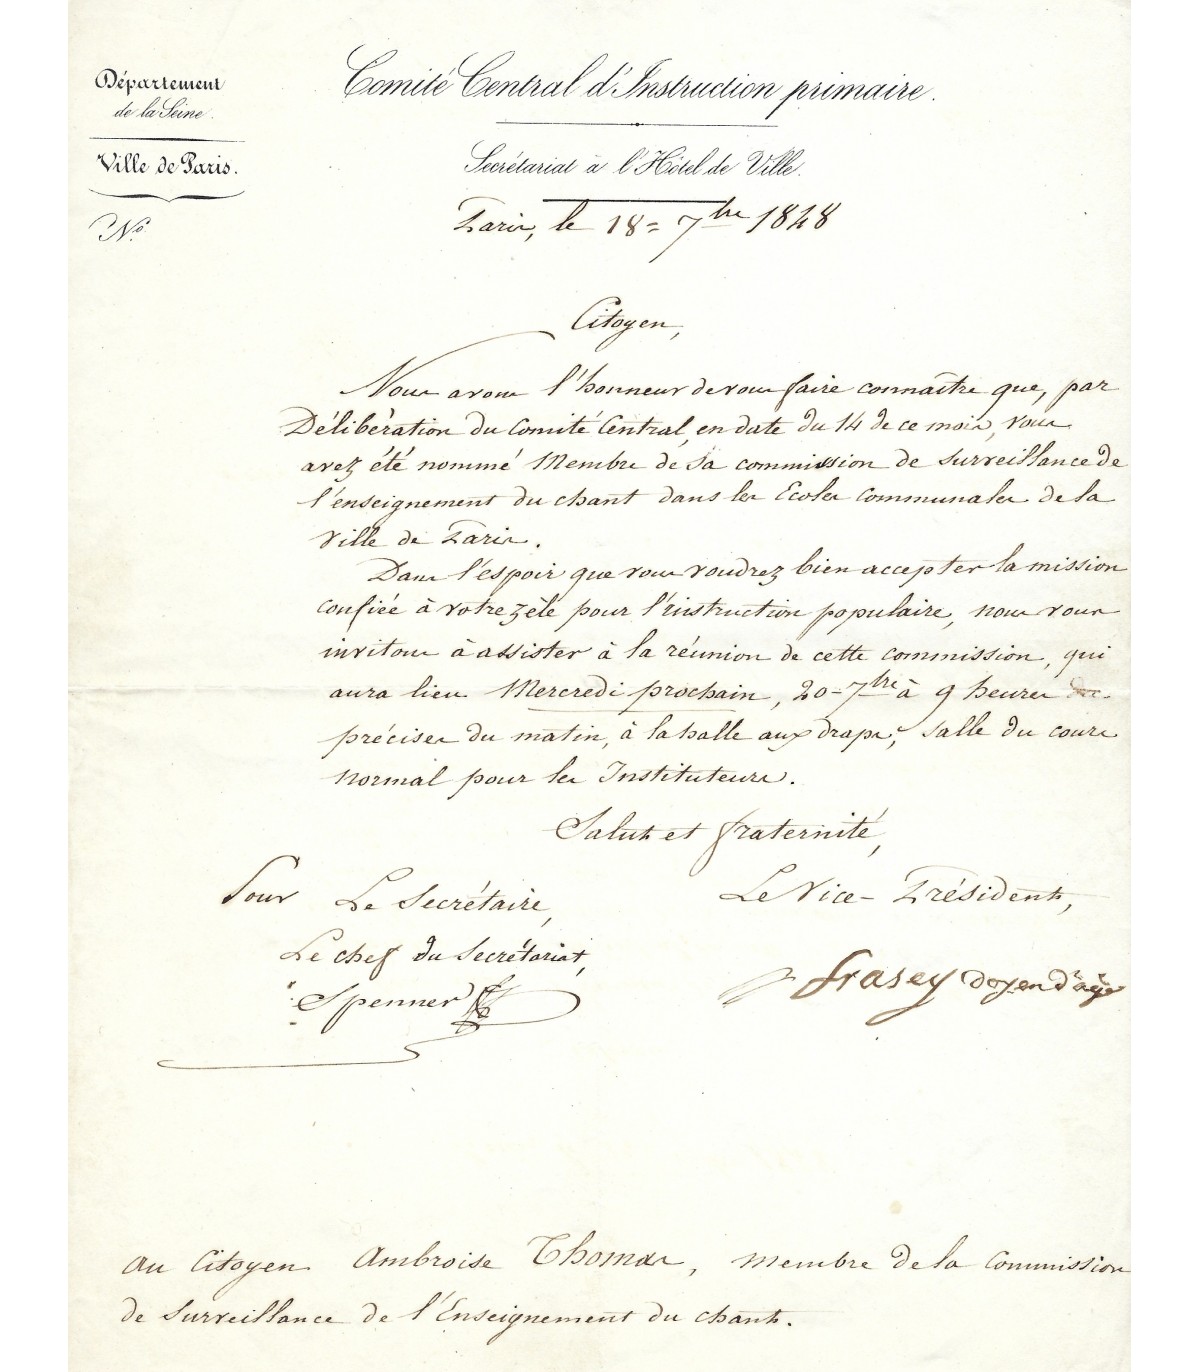 Département
de la Seine.
Ville de Paris.
N.º
Comité Central d'Instruction primaire.
Secrétariat à l'Hôtel de Ville.
Paris, le 18 = 7bre 1848
Citoyen,
Nous avons l'honneur de vous faire connaître que, par
Délibération du Comité Central, en date du 14 de ce mois, vous
avez été nommé Membre de sa commission de surveillance de
l'enseignement du chant dans les Ecoles Communales de la
ville de Paris.
Dans l'espoir que vous voudrez bien accepter la mission
confiée à votre zèle pour l'instruction populaire, nous vous
invitons à assister à la réunion de cette commission, qui
aura lieu Mercredi prochain, 20 - 7bre à 9 heures
précises du matin, à la halle aux draps, salle du cours
normal pour les Instituteurs.
Salut et fraternité,
Pour Le Secrétaire,
Le chef du secrétariat,
Spenner
Le Vice-Président,
Frasey doyen d'âge
au Citoyen Ambroise Thomas, membre de la Commission
de surveillance de l'Enseignement du chant.